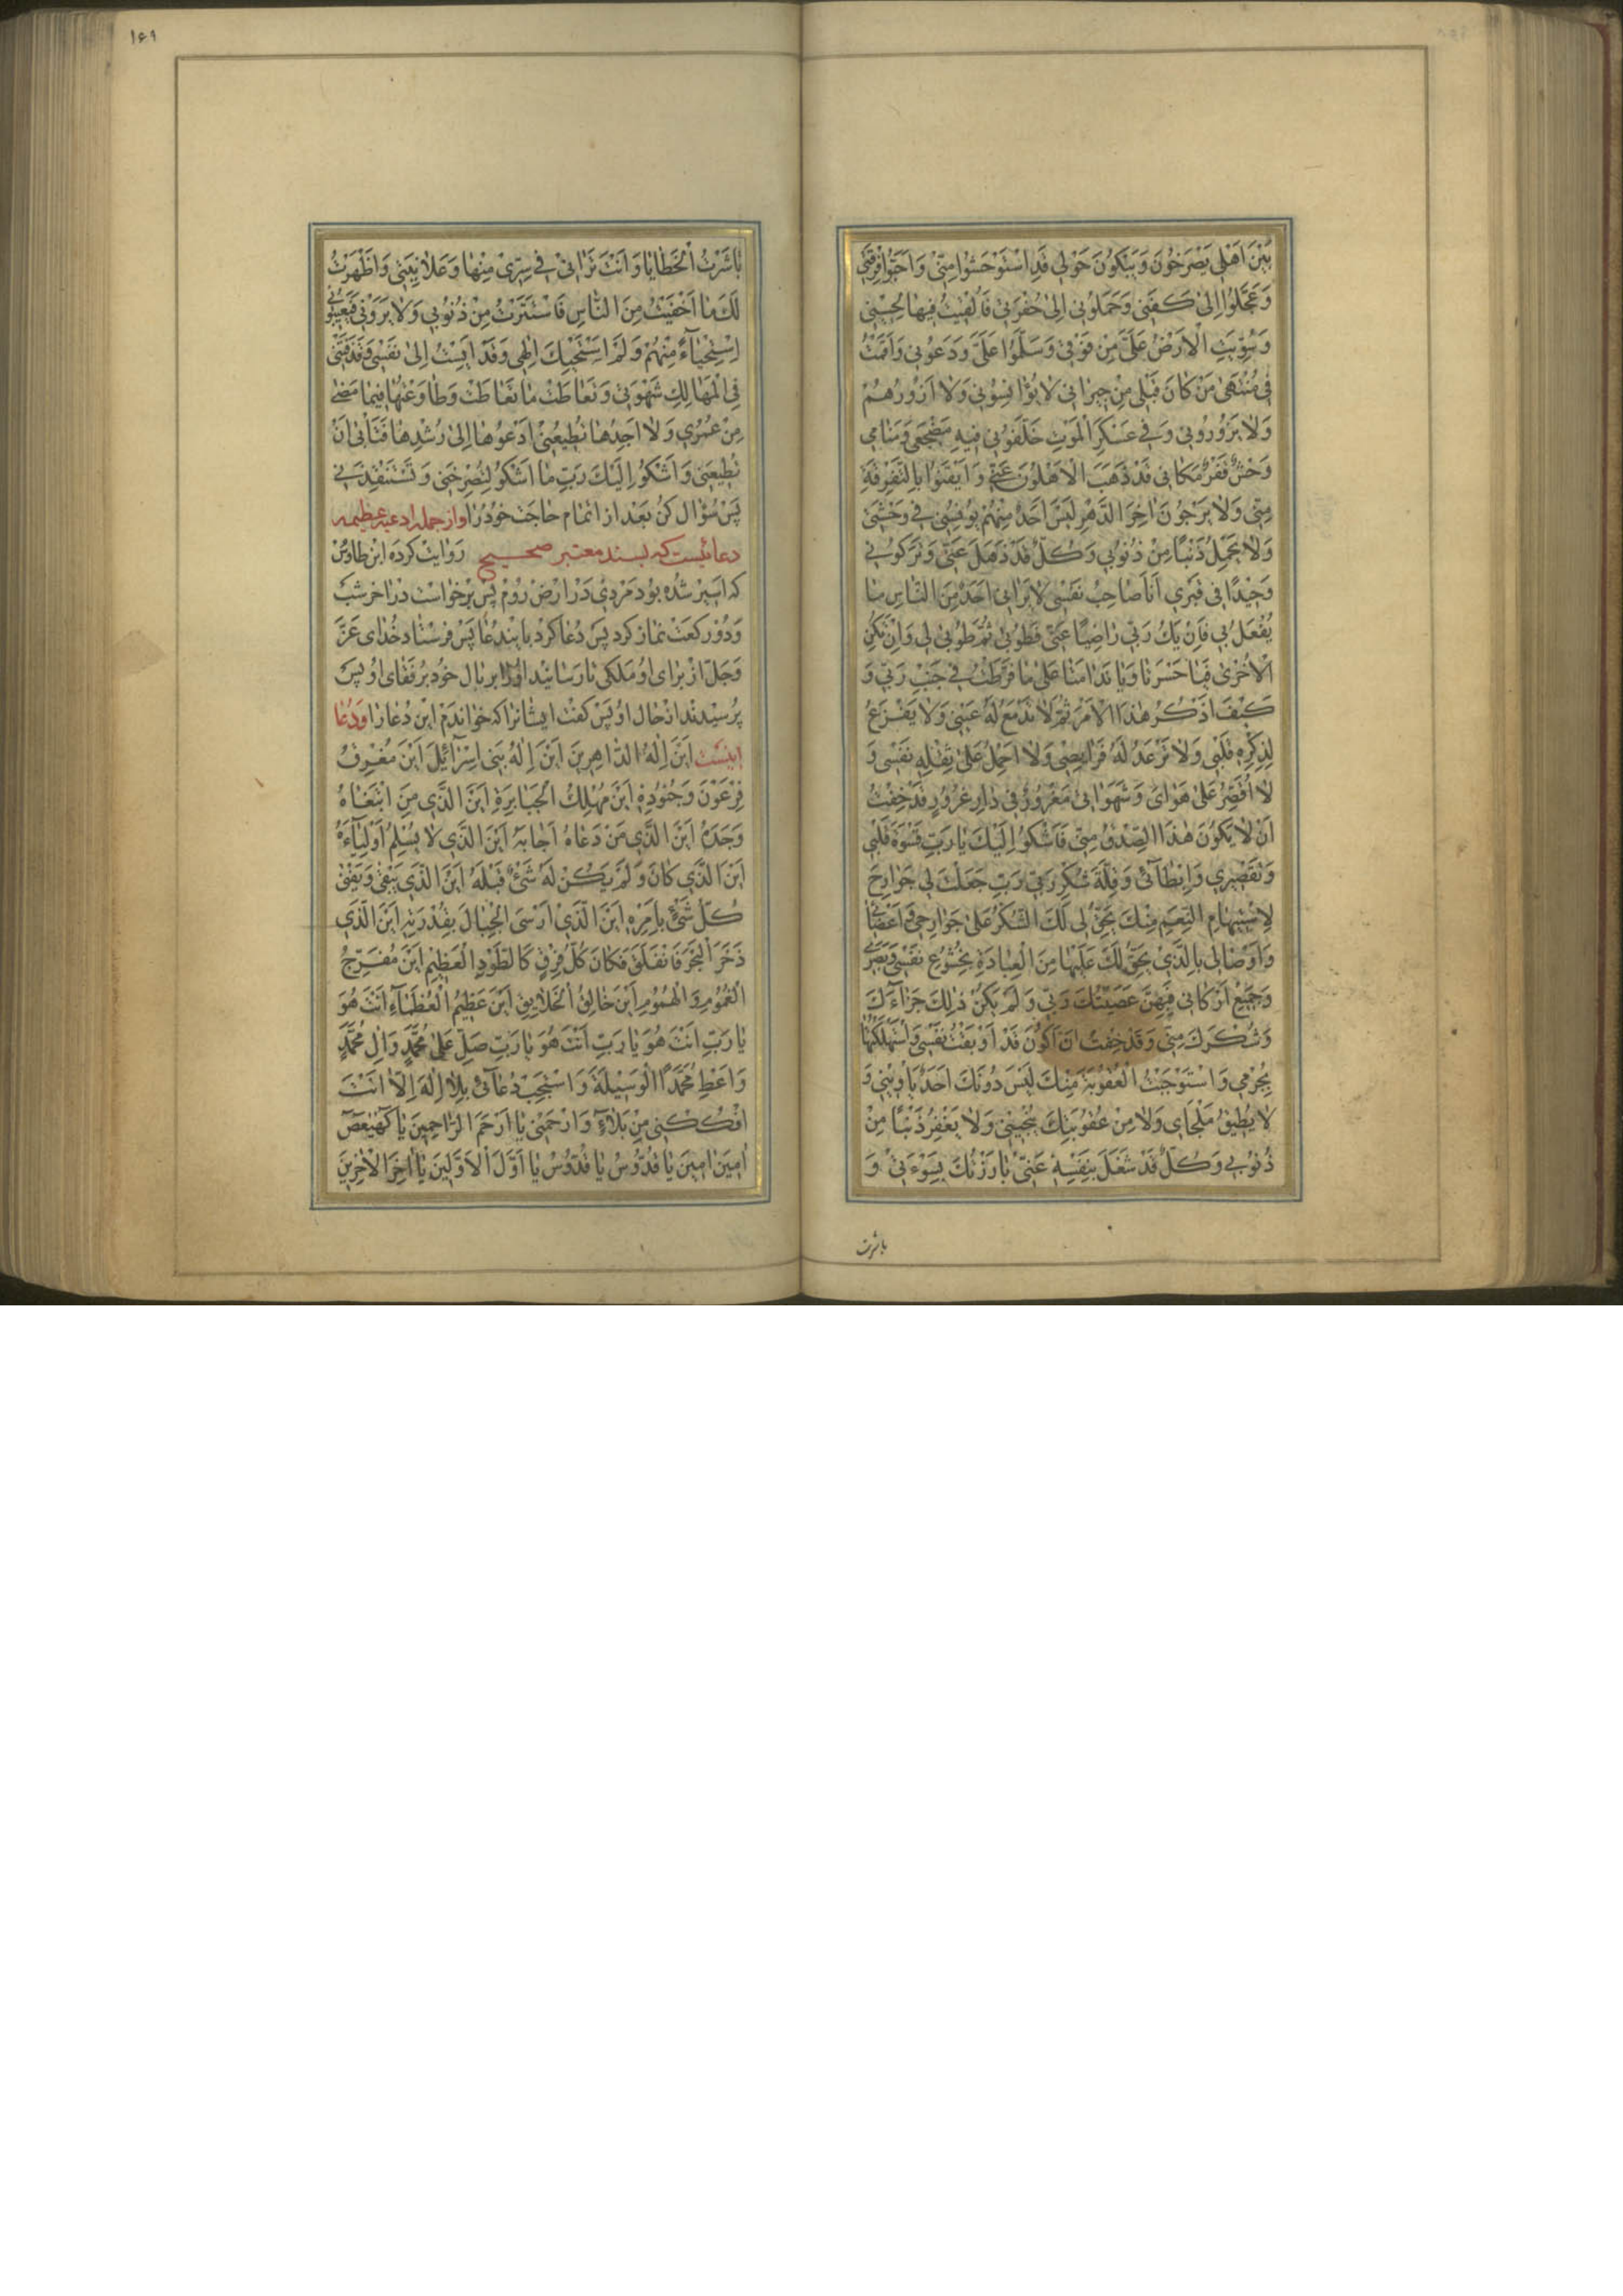 بَيْنَ اَهْلي يَصْرَخُونَ وَيَبْكُونَ حَوْلي قَدِ اسْتَوْحَشُوا مِنّي وَاَحَبُّوا فُرْقَتي
وَعَجَّلُوا اِلىٰ كَفَني وَحَمَلُوني اِلىٰ حُفْرَتي فَاُلْقيتُ فيها لِحَيْني
وَسُوِّيَتِ الْاَرْضُ عَلَيَّ مِنْ فَوْقي وَسَلَّمُوا عَلَيَّ وَدَعُوني وَاَقَمْتُ
في مُنْتَهىٰ مَنْ كانَ قَبْلي مِنْ جيراني لا يُؤانِسُوني وَلا اَزُورُهُمْ
وَلا يَزُورُوني وَفي عَسْكَرِ الْمَوْتِ خَلَّفُوني فيهِ مَضْجَعي وَمَنامي
وَحْشٌ قَفْرٌ مَكاني قَدْ ذَهَبَ الْاَهْلُونَ عَنّي وَاَيْقَنُوا بِالتَّفْرِقَةِ
مِنّي وَلا يَرْجُونَ اٰخِرَ الدَّهْرِ لَيْسَ اَحَدٌ مِنْهُمْ يُونِسُني في وَحْشَتي
وَلا يَحْمِلُ ذَنْبًا مِنْ ذُنُوبي وَكُلٌّ قَدْ ذَهَلَ عَنّي وَتَرَكُوني
وَحيدًا في قَبْري اَنَا صاحِبُ نَفْسي لا يَراني اَحَدٌ مِنَ النّاسِ ما
يُفْعَلُ بي فَاِنْ يَكُ رَبّي راضِيًا عَنّي فَطُوبىٰ ثُمَّ طُوبىٰ لي وَاِنْ يَكُنِ
الْاُخْرىٰ فَيا حَسْرَتا وَيا نَدامَتا عَلىٰ ما فَرَّطْتُ في جَنْبِ رَبّي وَ
كَيْفَ اَذْكُرُ هٰذَا الْاَمْرَ ثُمَّ لا تَدْمَعُ لَهُ عَيْني وَلا يَفْزَعُ
لِذِكْرِهِ قَلْبي وَلا تَرْعَدُ لَهُ فَرائِصي وَلا اَحْمِلُ عَلىٰ ثِقْلِهِ نَفْسي وَ
لا اُقَصِّرُ عَلىٰ هَوايَ وَشَهَواتي مَغْرُورٌ في دارِ غُرُورٍ قَدْ خِفْتُ
اَنْ لا يَكُونَ هٰذَا الصِّدْقُ مِنّي فَاَشْكُو اِلَيْكَ يا رَبِّ قَسْوَةَ قَلْبي
وَتَقْصيري وَاِبْطآئي وَقِلَّةَ شُكْري رَبّي رَبِّ جَعَلْتَ لي جَوارِحَ
لِاسْتِتْمامِ النِّعَمِ مِنْكَ يَحِقُّ لي لَكَ الشُّكْرُ عَلىٰ جَوارِحي وَاَعْضائي
وَاَوْصالي بِالَّذي يَحِقُّ لَكَ عَلَيْها مِنَ الْعِبادَةِ بِخُشُوعِ نَفْسي وَبَصَري
وَجَميعِ اَرْكاني فَبِهِنَّ عَصَيْتُكَ رَبّي وَلَمْ يَكُنْ ذٰلِكَ جَزاءَكَ
وَشُكْرَكَ مِنّي وَقَدْ خِفْتُ اَنْ اَكُونَ قَدْ اَوْبَقْتُ نَفْسي وَاسْتَهْلَكْتُها
بِجُرْمي وَاسْتَوْجَبْتُ الْعُقُوبَةَ مِنْكَ لَيْسَ دُونَكَ اَحَدٌ يَأْويني وَ
لا يُطيقُ مَلْجَاي وَلا مِنْ عُقُوبَتِكَ يُنْجيني وَلا يَغْفِرُ ذَنْبًا مِنْ
ذُنُوبي وَكُلٌّ قَدْ شُغِلَ بِنَفْسِهِ عَنّي بارَزْتُكَ بِسَوْءَتي وَ
باشرت
١۶١
باشَرْتُ الْخَطايا وَاَنْتَ تَراني في سِرّي مِنْها وَعَلانِيَتي وَاَظْهَرْتُ
لَكَ ما اَخْفَيْتُ مِنَ النّاسِ فَاسْتَتَرْتُ مِنْ ذُنُوبي وَلا يَرَوْني فَيَعيبُوني
اِسْتِحْياءً مِنْهُمْ وَلَمْ اَسْتَحْيِكَ اِلٰهي وَقَدْ اَيِسْتُ اِلىٰ نَفْسي وَقَذَفَتْني
فِي الْمَهالِكِ شَهْوَتي وَتَعاطَتْ ما تَعاطَتْ وَطاوَعْتُها فيما مَضىٰ
مِنْ عُمْري وَلا اَجِدُها تُطيعُني اَدْعُوها اِلىٰ رُشْدِها فَتَأْبىٰ اَنْ
تُطيعَني وَاَشْكُو اِلَيْكَ رَبِّ ما اَشْكُو لِتُصْرِخَني وَتَسْتَنْقِذَني
پس سؤال كن بعد از اتمام حاجت خود را و از جمله ادعيه عظيمه
دعائيست كه بسند معتبر صحيح روايت كرده ابن طاوس
كه اسير شده بود مردى در ارض روم پس برخواست در اخر شب
و دو ركعت نماز كرد پس دعا كرد باين دعا پس فرستاد خداى عزّ
وجلّ از براى او ملكى تا رسانيد او را بر بال خود برفقاى او پس
پرسيدند از حال او پس گفت ايشانرا كه خواندم اين دعا را و دعا
اينست اَيْنَ اِلٰهُ الدّاهِرينَ اَيْنَ اِلٰهُ بَني اِسْرآئيلَ اَيْنَ مُغْرِقُ
فِرْعَوْنَ وَجُنُودِهِ اَيْنَ مُهْلِكُ الْجَبابِرَةِ اَيْنَ الَّذي مَنِ ابْتَغاهُ
وَجَدَهُ اَيْنَ الَّذي مَنْ دَعاهُ اَجابَهُ اَيْنَ الَّذي لا يُسْلِمُ اَوْلِيآءَهُ
اَيْنَ الَّذي كانَ وَلَمْ يَكُنْ لَهُ شَيْءٌ قَبْلَهُ اَيْنَ الَّذي يَبْقىٰ وَيَفْنىٰ
كُلُّ شَيْءٍ بِاَمْرِهِ اَيْنَ الَّذي اَرْسَى الْجِبالَ بِقُدْرَتِهِ اَيْنَ الَّذي
زَخَرَ الْبَحْرَ فَانْفَلَقَ فَكانَ كُلُّ فِرْقٍ كَالطَّوْدِ الْعَظيمِ اَيْنَ مُفَرِّجُ
الْغُمُومِ وَالْهُمُومِ اَيْنَ خالِقُ الْخَلايِقِ اَيْنَ عَظيمُ الْعُظَمآءِ اَنْتَ هُوَ
يا رَبِّ اَنْتَ هُوَ يا رَبِّ اَنْتَ هُوَ يا رَبِّ صَلِّ عَلىٰ مُحَمَّدٍ وَاٰلِ مُحَمَّدٍ
وَاَعْطِ مُحَمَّدًا الْوَسيلَةَ وَاسْتَجِبْ دُعآئي بِلا اِلٰهَ اِلّا اَنْتَ
افْكُكْني مِنْ بَلاءٍ وَارْحَمْني يا اَرْحَمَ الرّاحِمينَ يا كٓهٰيٰعٓصٓ
اٰمينَ اٰمينَ يا قُدُّوسُ يا قُدُّوسُ يا اَوَّلَ الْاَوَّلينَ يا اٰخِرَ الْاٰخِرينَ